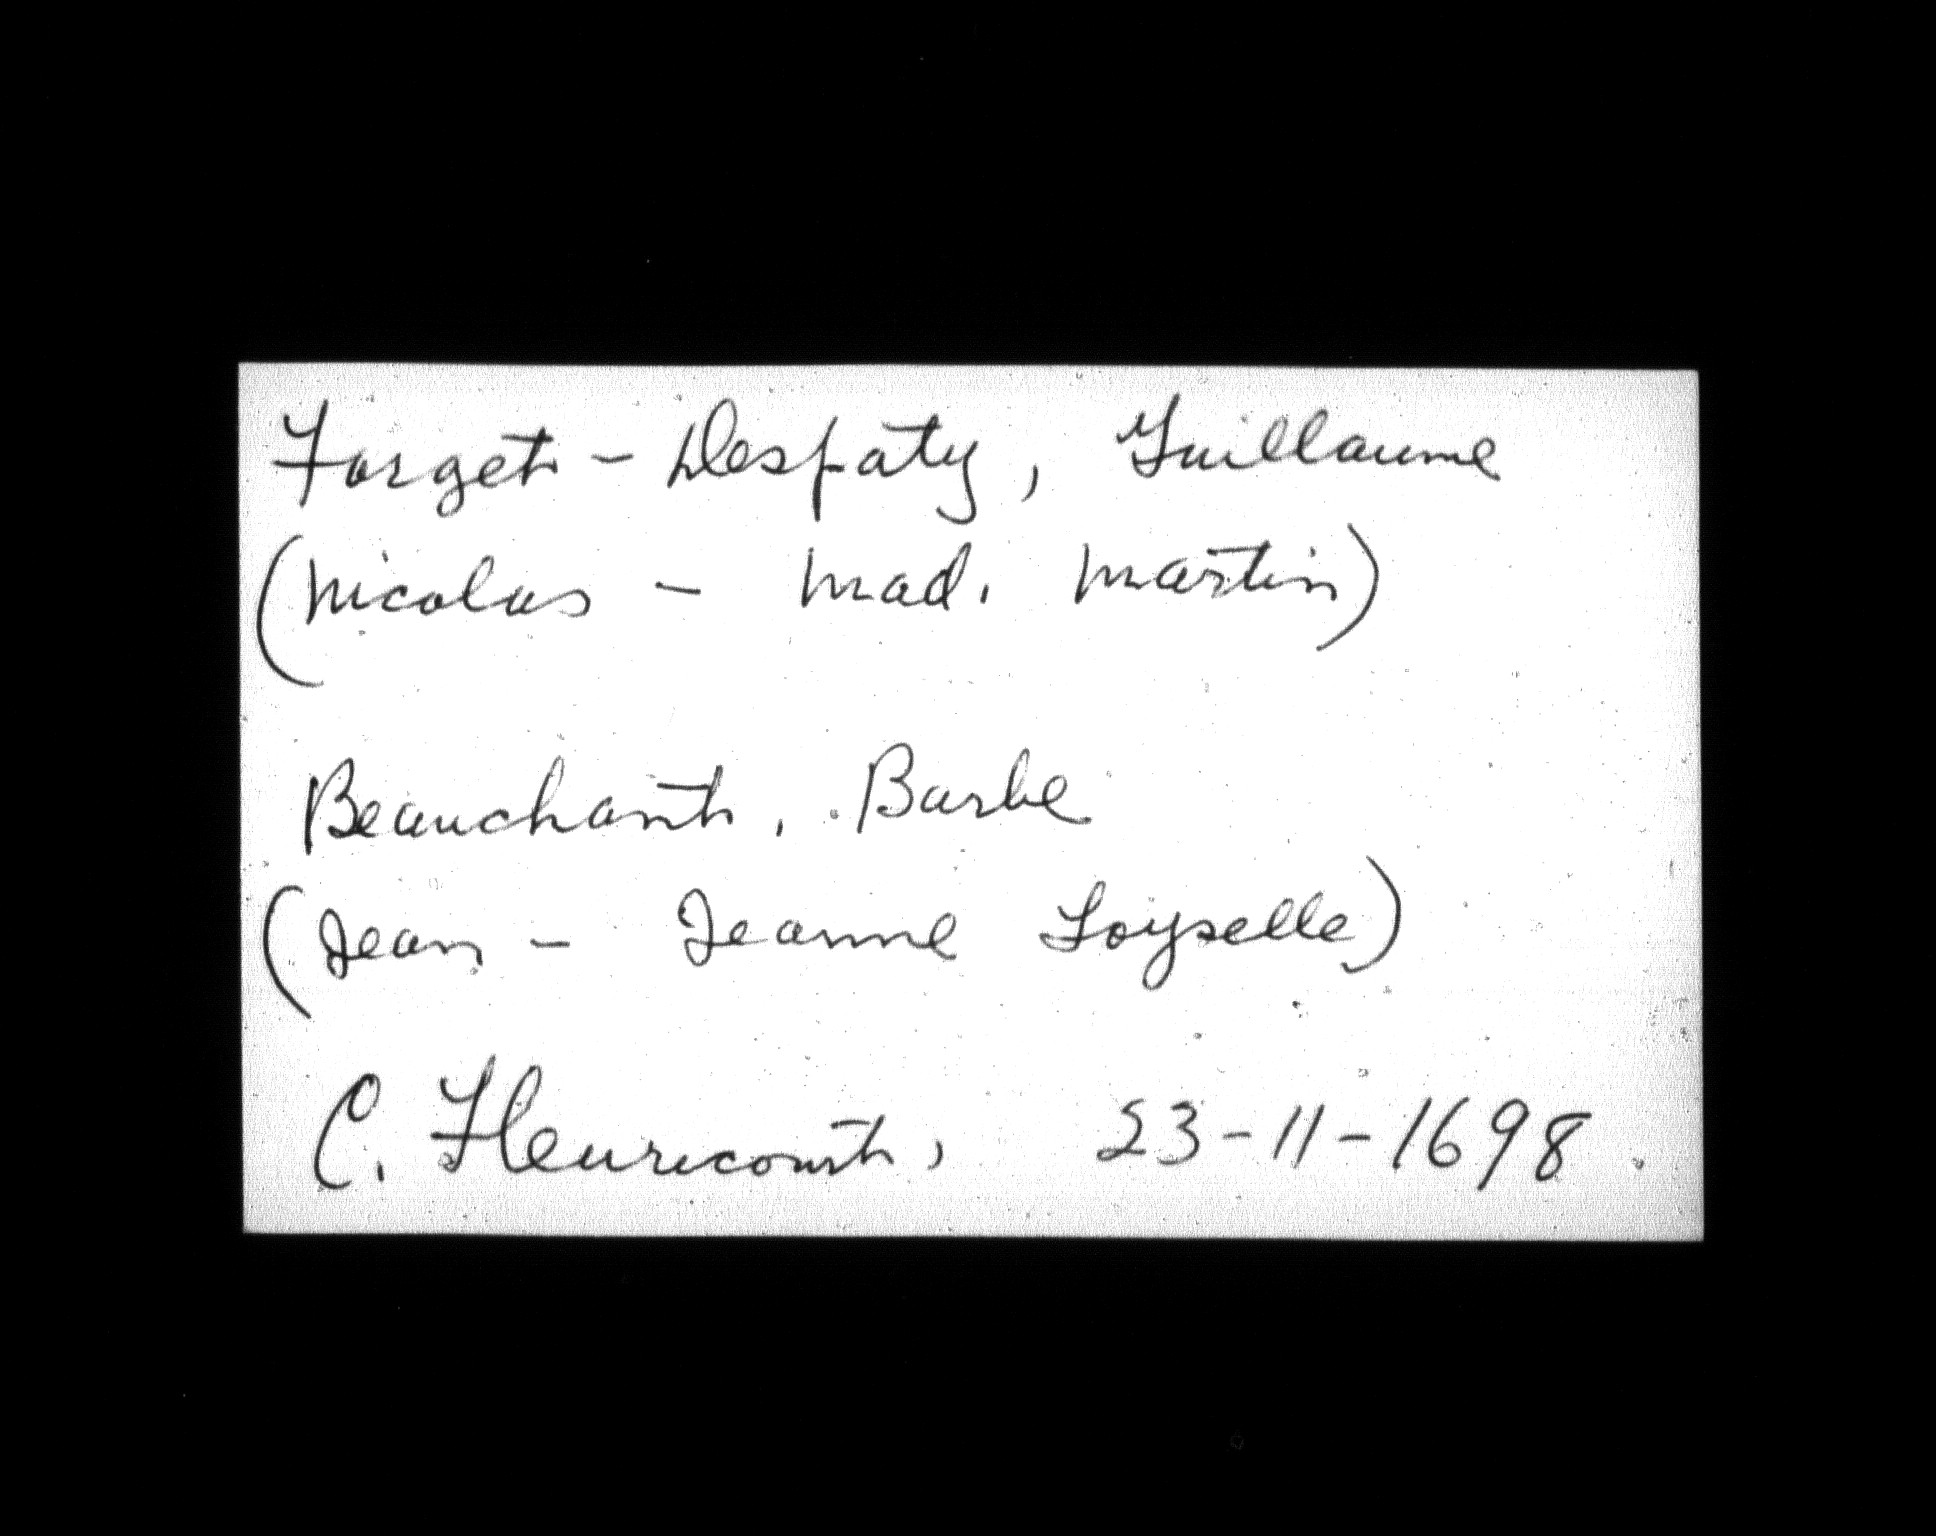 Forget - Despaty, Guillaume
(Nicolas - Mad. Martin)
Beauchant, Barbe
(Jean - Jeanne Loyselle)
C. Fleuricourt, 23-11-1698.